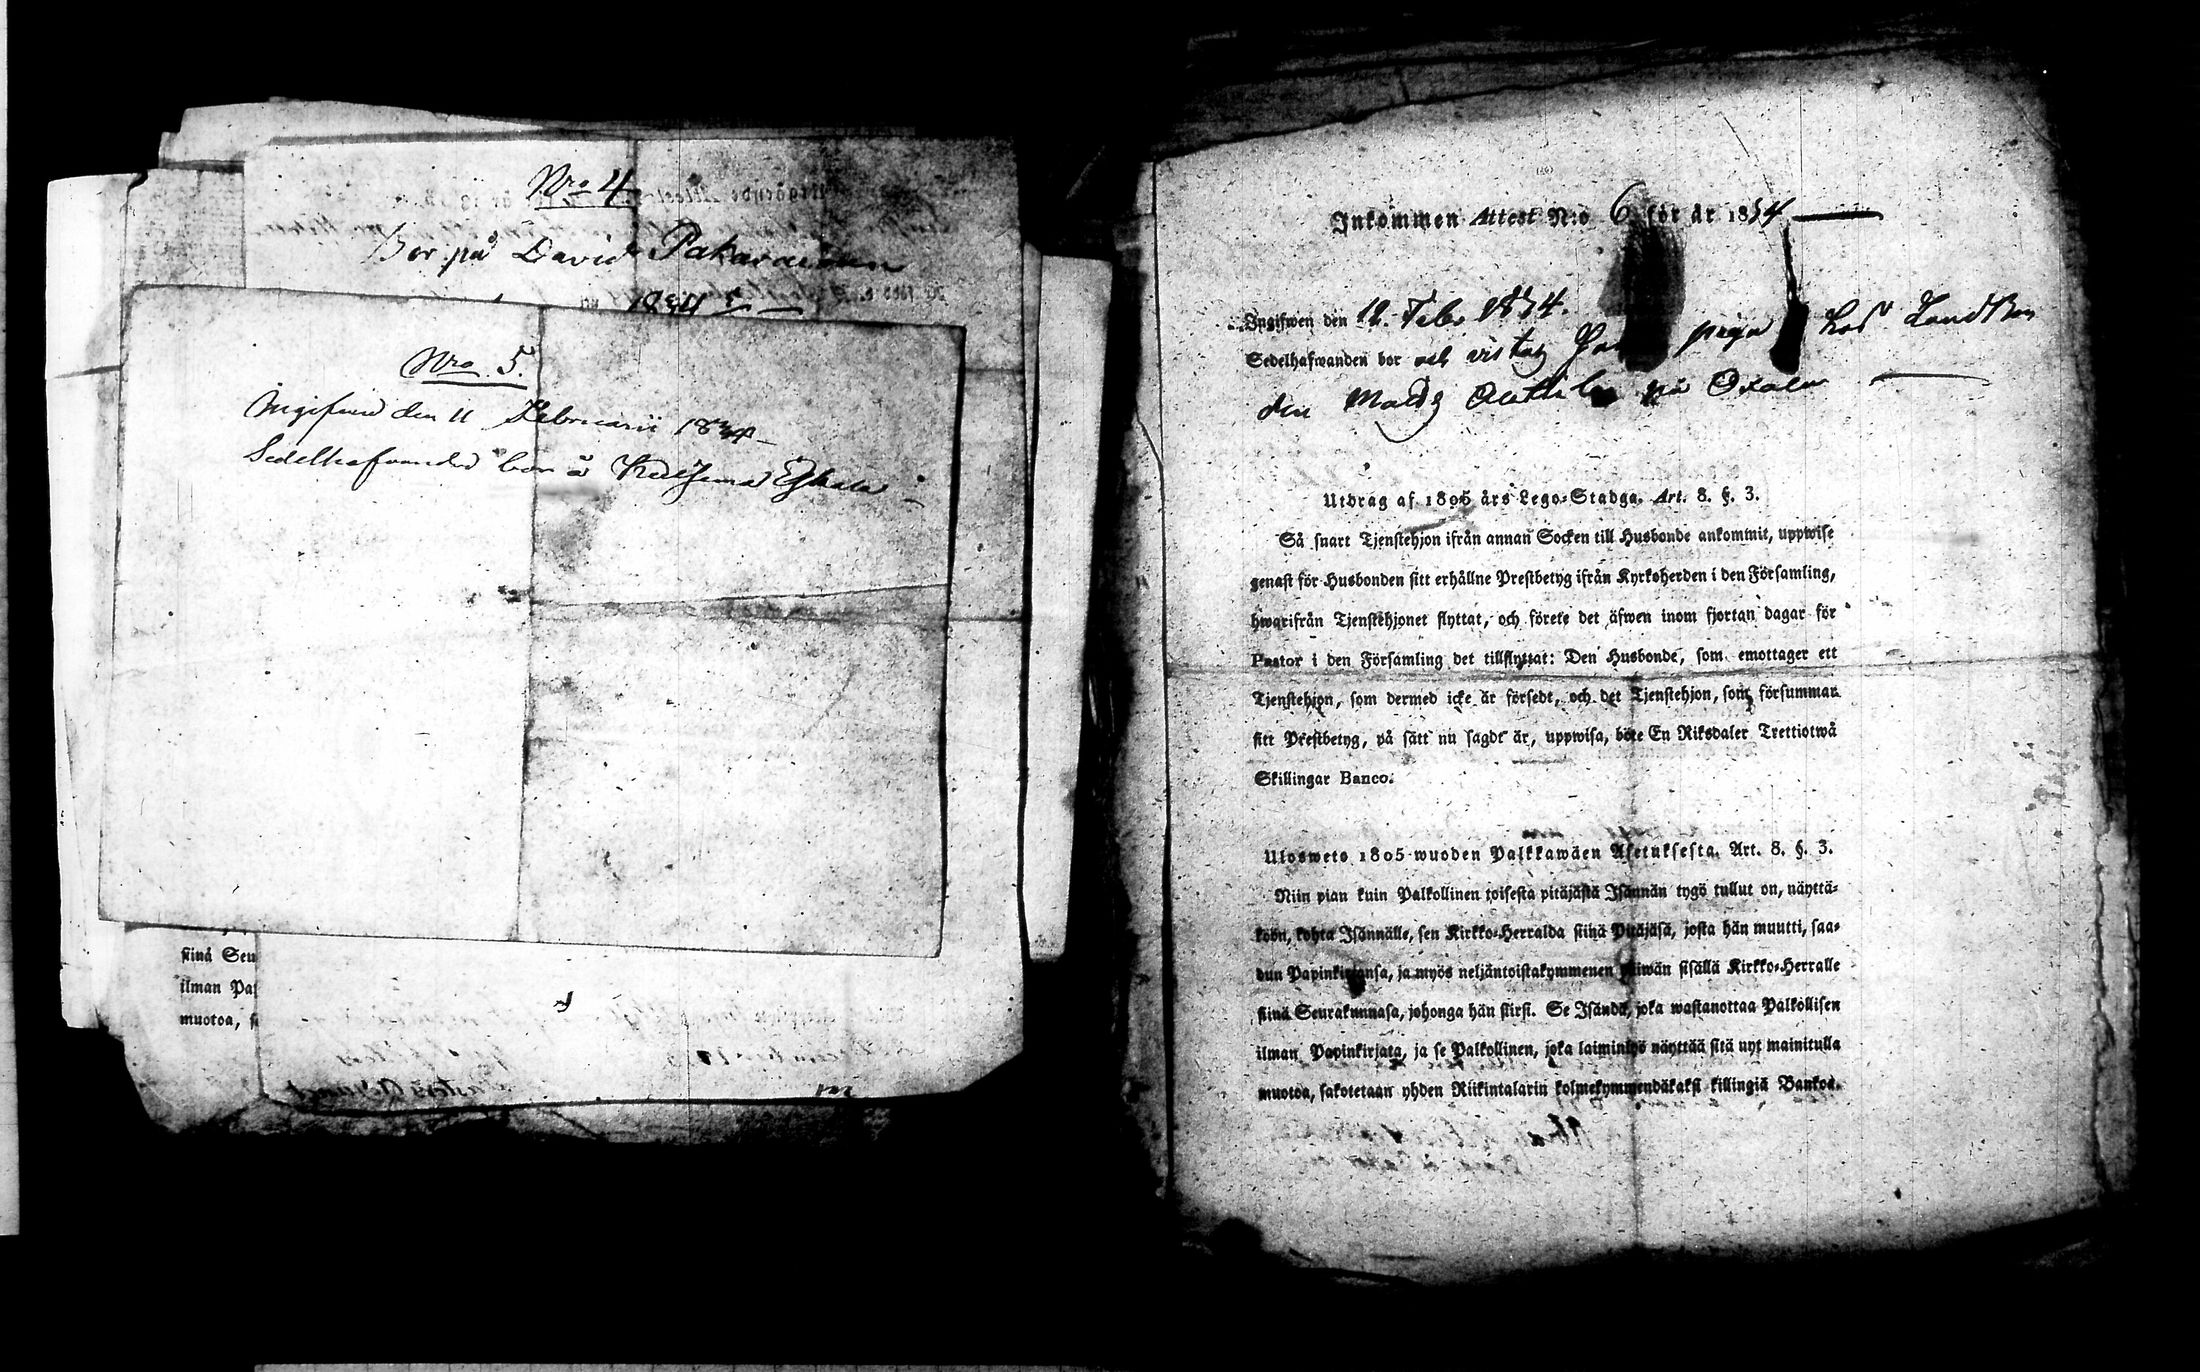 Nro 4.
Bor på David Pakarainen
1834
Nro 5.
Ingifwen den 11 Februarii 1834
Sedelhafwanden bor å
stinä Seu
ilman Pa
muotoa, s
Inkommen Attest N:o 6 för år 1834
Ingifwen den 12 Febr 1834.
Sedelhafwanden bor och vistas piga hos Landtbon
den Matts på
Utdrag af 1805 års Lego-Stadga. Art. 8. §. 3.
Så snart Tjenstehjon ifrån annan Socken till Husbonde ankommit, uppwise
genast för Husbonden sitt erhållne Prestbetyg ifrån Kyrkoherden i den Församling,
hwarifrån Tjenstehjonet flyttat, och förete det äfwen inom fjortan dagar för
Pastor i den Församling det tillflyttat: Den Husbonde, som emottager ett
Tjenstehjon, som dermed icke är försedt, och det Tjenstehjon, som försummar
sitt Prestbetyg, på sätt nu sagdt är, uppwisa, böte En Riksdaler Trettiotwå
Skillingar Banco.
Ulosweto 1805 wuoden Palkkawäen Asetuksesta. Art. 8. §. 3.
Niin pian kuin Palkollinen toisesta pitäjästä Isännän tygö tullut on, näyttä-
köön, kohta Isännälle, sen Kirkko-Herralda siinä Pitäjäsä, josta hän muutti, saa-
dun Papinkirjansa, ja myös neljäntoistakymmenen päiwän sisällä Kirkko-Herralle
siinä Seurakunnasa, johonga hän siirsi. Se Isändä, joka wastanottaa Palkollisen
ilman Papinkirjata, ja se Palkollinen, joka laiminlyö näyttää sitä nyt mainitulla
muotoa, sakotetaan yhden Riikintalarin kolmekymmendäkaksi killingiä Bankoa.